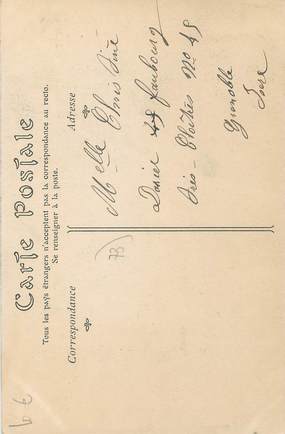 Carte Postale
Tous les pays étrangers n'acceptent pas la correspondance au recto.
Se renseigner à la poste.
Correspondance
Adresse
Melle
faubourg
Très-Cloîtres No 45
Grenoble
Isère
73
6 €